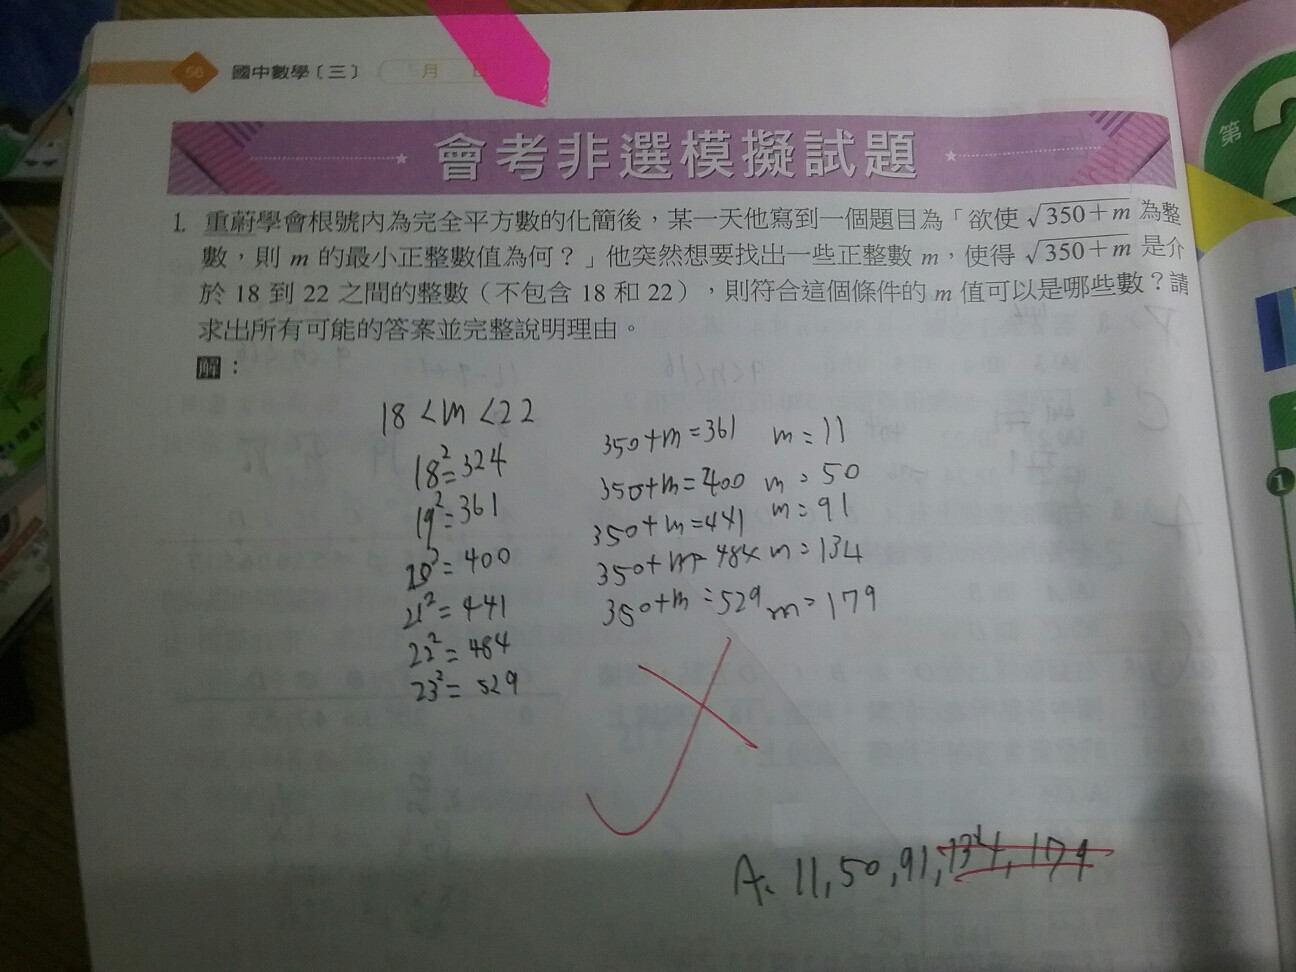 56 國中數學〔三〕 月
會考非選模擬試題
第 2
1. 重蔚學會根號內為完全平方數的化簡後，某一天他寫到一個題目為「欲使 √350+m 為整
數，則 m 的最小正整數值為何？」他突然想要找出一些正整數 m，使得 √350+m 是介
於 18 到 22 之間的整數（不包含 18 和 22），則符合這個條件的 m 值可以是哪些數？請
求出所有可能的答案並完整說明理由。
解：
18<m<22
18²=324
19²=361
20²=400
21²=441
22²=484
23²=529
350+m=361 m=11
350+m=400 m=50
350+m=441 m=91
350+m=484 m=134
350+m=529 m=179
A. 11,50,91,134,179
1